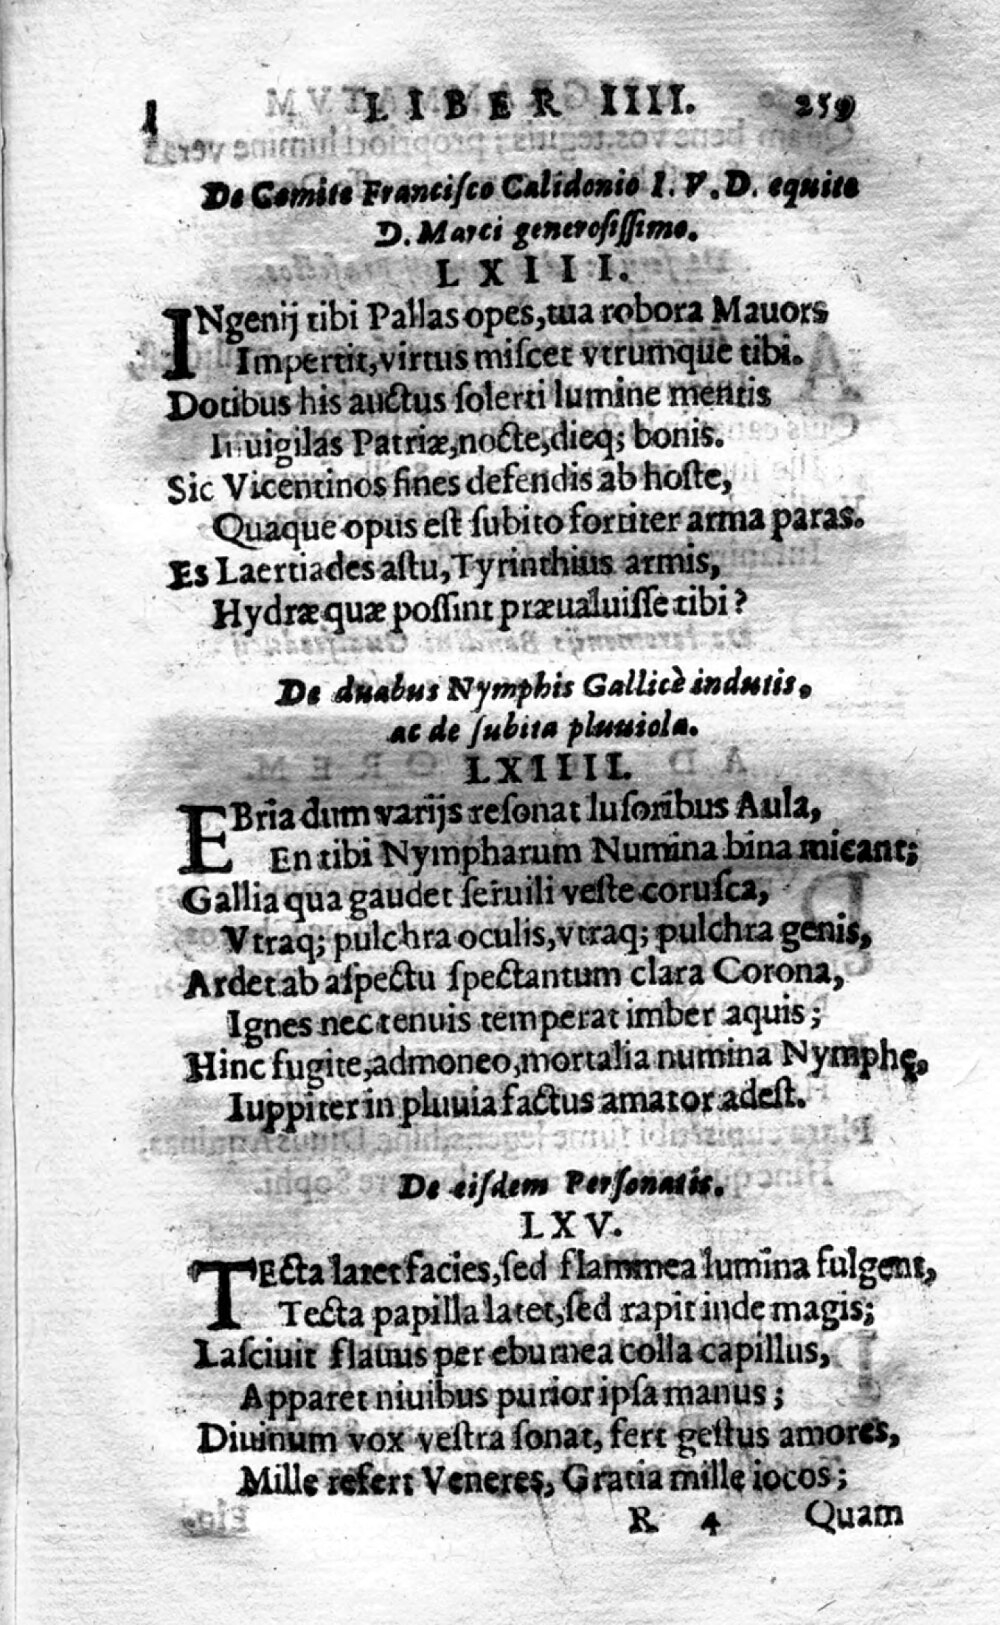 LIBER IIII. 259
De Comite Franciſco Calidonio I. V. D. equite
D. Marci generoſiſſimo.
LXIII.
INgenij tibi Pallas opes, tua robora Mauors
Impertit, virtus miſcet vtrumque tibi.
Dotibus his auctus ſolerti lumine mentis
Inuigilas Patriæ, nocte, dieq; bonis.
Sic Vicentinos fines defendis ab hoſte,
Quaque opus eſt ſubito fortiter arma paras.
Es Laertiades aſtu, Tyrinthius armis,
Hydræ quæ poſſint præualuiſſe tibi?
De duabus Nymphis Gallicè indutis,
ac de ſubita pluuiola.
LXIIII.
EBria dum varijs reſonat luſoribus Aula,
En tibi Nympharum Numina bina micant;
Gallia qua gaudet ſeruili veſte coruſca,
Vtraq; pulchra oculis, vtraq; pulchra genis,
Ardet ab aſpectu ſpectantum clara Corona,
Ignes nec tenuis temperat imber aquis;
Hinc fugite, admoneo, mortalia numina Nymphę,
Iuppiter in pluuia factus amator adeſt.
De eiſdem Perſonatis.
LXV.
TEcta latet facies, ſed flammea lumina fulgent,
Tecta papilla latet, ſed rapit inde magis;
Laſciuit flauus per eburnea colla capillus,
Apparet niuibus purior ipſa manus;
Diuinum vox veſtra ſonat, fert geſtus amores,
Mille refert Veneres, Gratia mille iocos;
R 4 Quam